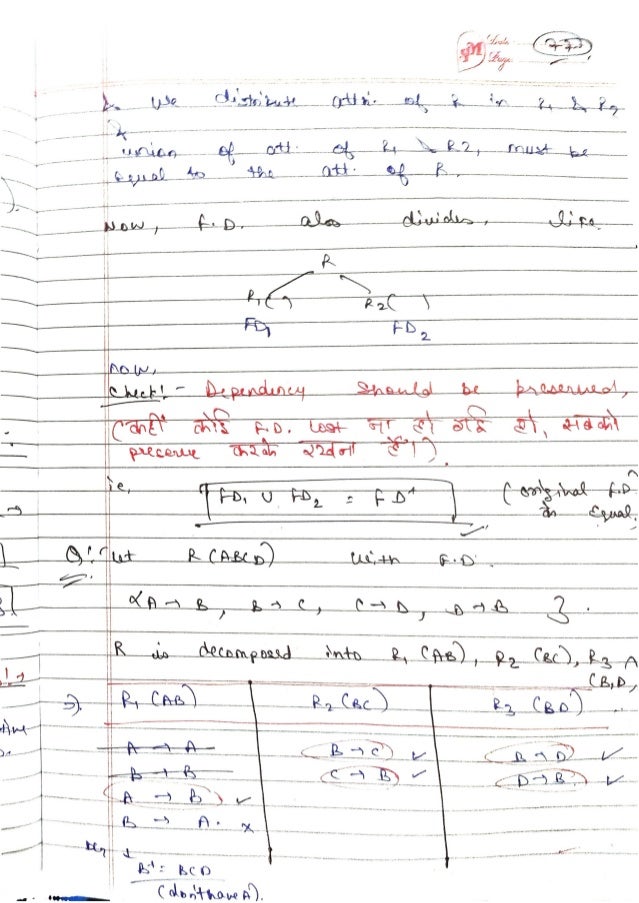 We distribute attri. of R in R1 & R2
&
union of att. of R1 & R2, must be
equal to the att. of R.
Now, F.D. also divides, like
R
R1( ) R2( )
FD1 FD2
now,
Check! - Dependency should be preserved,
(कहीं कोई F.D. Lost ना हो गई हो, सबको
preserve करके रखना है।)
ie, FD1 U FD2 = FD+ (original F.D
Equal.
Q! Let R(ABCD) with F.D.
{A → B, B → C, C → D, D → B }.
R is decomposed into R1 (AB), R2 (BC), R3
(B,D,
⇒). R1 (AB) R2 (BC) R3 (BD)
A → A B → C ✓ B → D ✓
B → B C → B ✓ D → B ✓
A → B ✓
B → A. x
B+ = BCD
(don't have A).